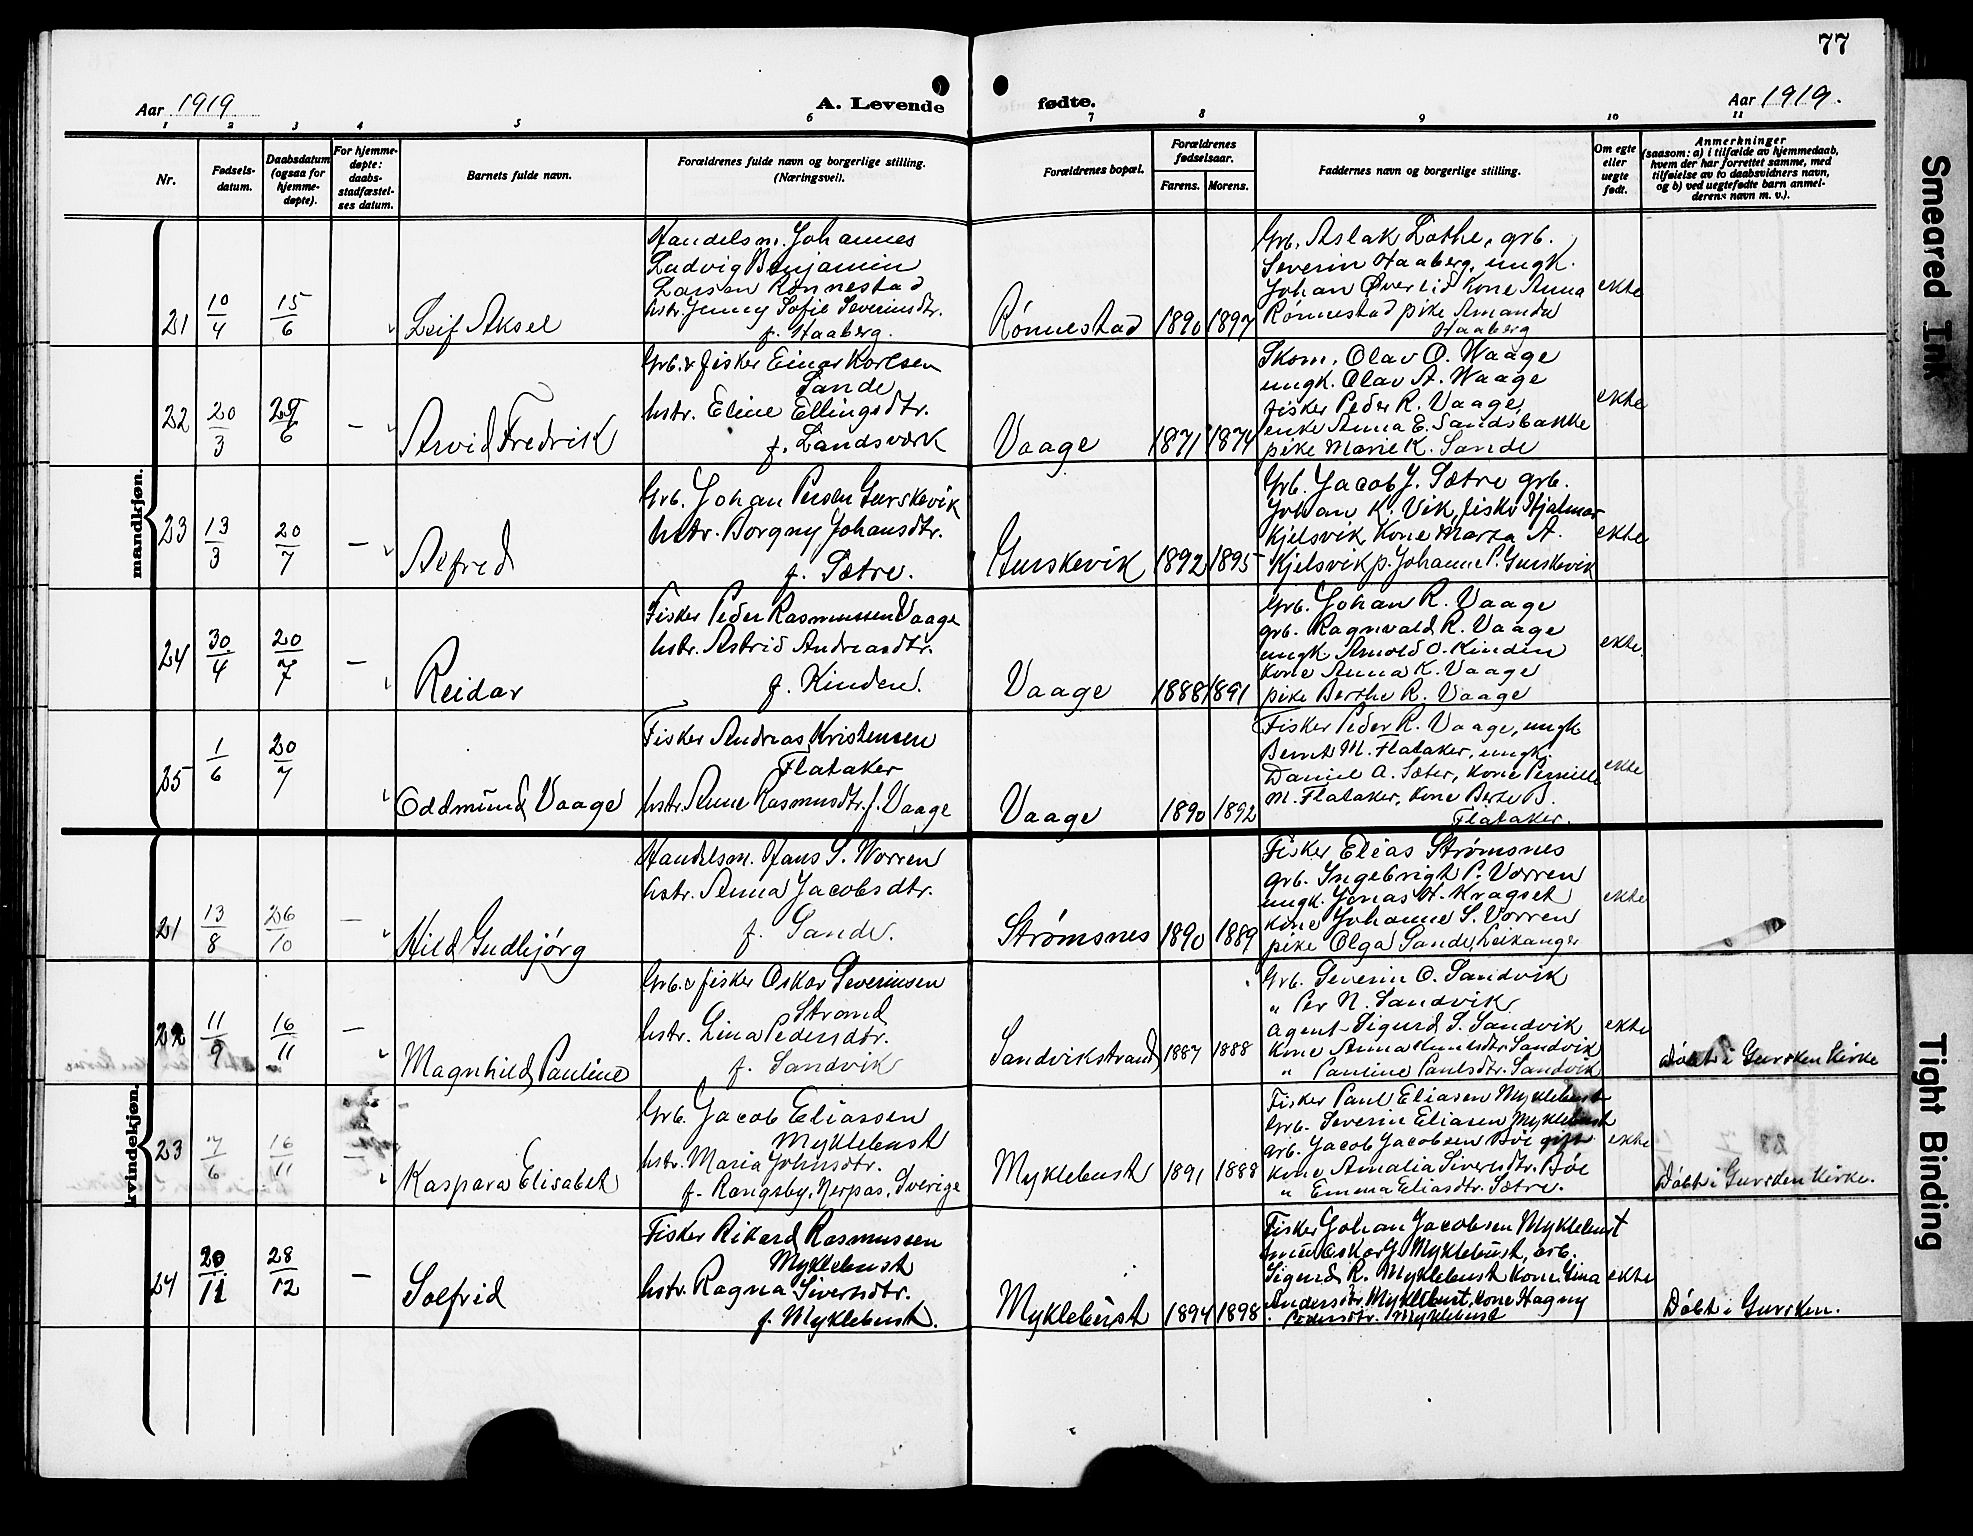 77
Aar 1919
A. Levende
fødte.
Aar 1919.
1 2 3 4 5 6 7 8 9 10 11
Nr.
Fødsels-
datum.
Daabsdatum
(ogsaa for
hjemme-
døpte).
For hjemme-
døpte:
daabs-
stadfæstel-
ses datum.
Barnets fulde navn.
Forældrenes fulde navn og borgerlige stilling.
(Næringsvei).
Forældrenes bopæl.
Forældrenes
fødselsaar.
Farens. Morens.
Faddernes navn og borgerlige stilling.
Om egte
eller
uegte
født.
Anmerkninger
(saasom: a) i tilfælde av hjemmedaab,
hvem der har forrettet samme, med
tilføielse av to daabsvidners navn,
og b) ved uegtefødte barn anmel-
derens navn m. v.).
mandkjøn.
21
10/4
15/6
Leif Aksel
Handelsm. Johannes
Ludvig Benjamin
Larsen Rønnestad
hstr. Jenny Sofie Severinsdtr.
f. Haaberg.
Rønnestad
1890 1897
Grb. Aslak Lothe, grb.
Severin Haaberg, ungk.
Johan Øverlid kone Anna
Rønnestad pike Amanda
Haaberg
ekte
22
20/3
29/6
—
Arvid Fredrik
Grb. & fisker Einar Karlsen
Sande
hstr. Eline Ellingsdtr.
f. Landsværk
Vaage
1871 1874
Skom. Olav O. Waage
ungk. Olav A. Waage
fisker Peder R. Vaage,
enke Anna E. Sandsbakke
pike Marie K. Sande
ekte
23
13/3
20/7
—
Alfred
Grb. Johan Persen Gurskevik
hstr. Borgny Johansdtr.
f. Sætre.
Gurskevik
1892 1895
Grb. Jacob J. Sætre grb.
Johan K. Vik, fisker Hjalmar
Kjelsvik, Kone Marta A.
Kjelsvik p. Johanne P. Gurskevik
ekte
24
30/4
20/7
—
Reidar
Fisker Peder Rasmussen Vaage
hstr. Astrid Andreasdtr.
f. Kinden.
Vaage
1888 1891
Grb. Johan R. Vaage
grb. Ragnvald R. Vaage
ungk Arnold O. Kinden
kone Anna K. Vaage
pike Berthe R. Vaage
ekte.
25
1/6
20/7
Oddmund Vaage
Fisker Andreas Kristensen
Flataker
hstr. Anne Rasmusdtr. f. Vaage
Vaage
1890 1892
Fisker Peder R. Vaage, ungk
Bernt M. Flataker, ungk
Daniel A. Sæter, kone Pernille
M. Flataker, kone Berte B.
Flataker.
ekte
kvindekjøn.
21
13/8
26/10
—
Hild Gudbjørg
Handelsm. Hans S. Worren
hstr. Anna Jacobsdtr.
f. Sande.
Strømsnes
1890 1889
Fisker Elias Strømsnes
grb. Ingebrigt P. Vorren
ungk. Jonas H. Kragset
kone Johanne S. Vorren
pike Olga Sande, Leikanger
ekte
22
11/9
16/11
—
Magnhild Pauline
Grb. & fisker Oskar Severinsen
Strand
hstr. Lina Pedersdtr.
f. Sandvik
Sandvikstrand
1887 1888
Grb. Severin O. Sandvik
" Per N. Sandvik
agent Sigurd S. Sandvik
kone Anna Sandvik
" Pauline Paulsdtr. Sandvik
ekte
Døbt i Gursken Kirke
23
7/6
16/11
Kaspara Elisabet
Grb. Jacob Eliassen
Myklebust
hstr. Maria Johnsdtr.
f. Rangsby, Nerpas, Sverige
Myklebust
1891 1888
Fisker Paul Eliasen Myklebust
Grb. Severin Eliasen Myklebust
grb. Jacob Jacobsen Bøe gift
kone Amalia Siversdtr. Bøe
" Emma Eliasdtr. Sætre.
ekte
Døbt i Gursken Kirke.
24
20/11
28/12
—
Solfrid
Fisker Rikard Rasmussen
Myklebust
hstr. Ragna Siversdtr.
f. Myklebust.
Myklebust
1894 1898
Fisker Johan Jacobsen Myklebust
Oskar J. Myklebust, grb.
Sigurd R. Myklebust kone Gina
Andersdtr. Myklebust, kone Hagny
Pedersdtr. Myklebust
ekte
Døbt i Gursken.
Smeared Ink
Tight Binding